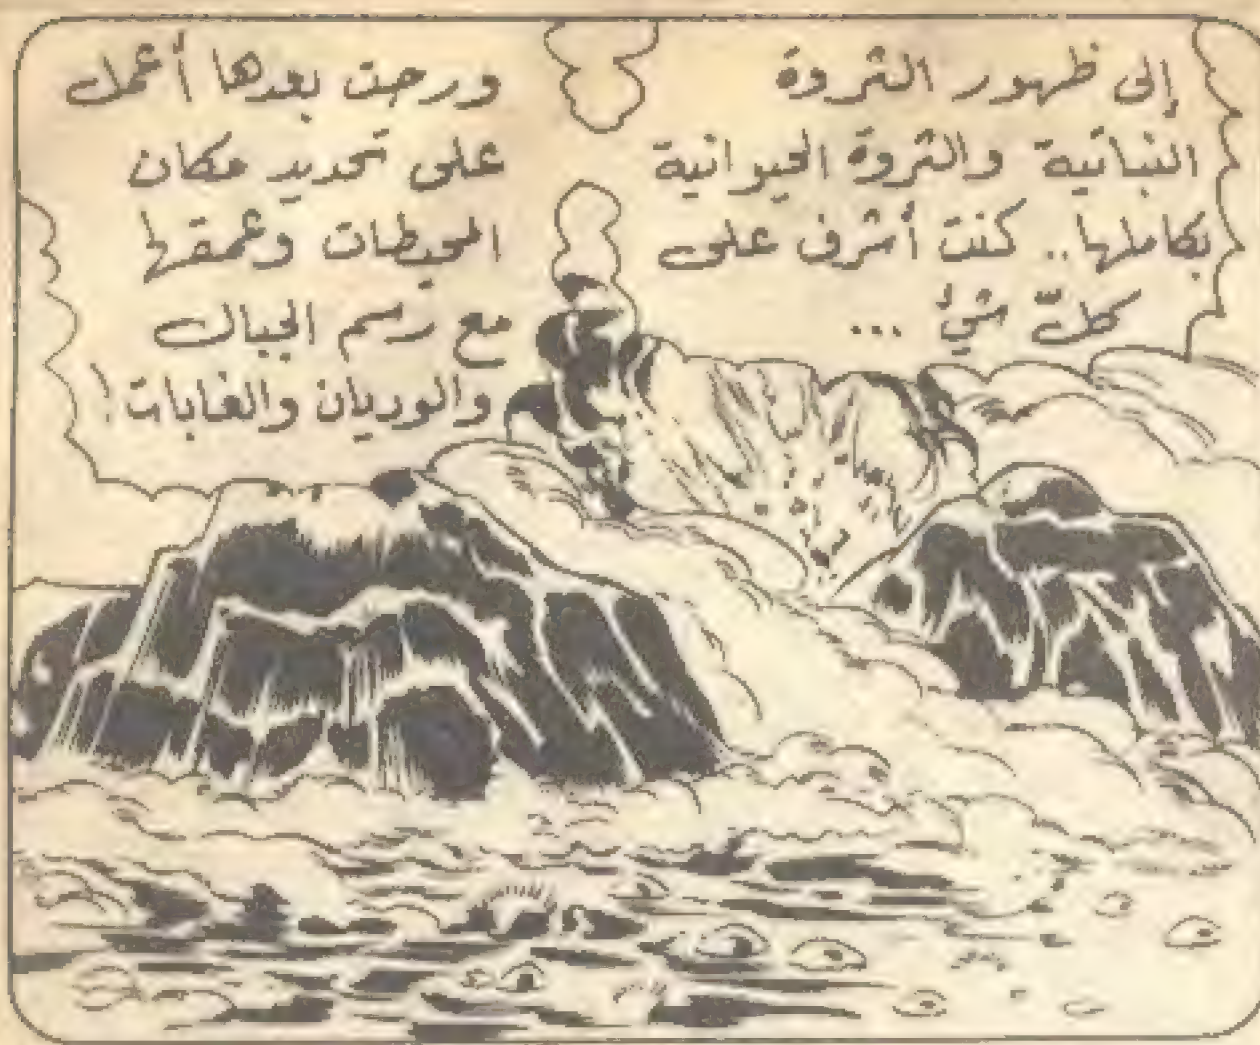 إلى ظهور الثروة
النباتية والثروة الحيوانية
بكاملها.. كنت أشرف على
كلّ شيءٌ ...
ورحت بعدها أعمل
على تحديد مكان
المحيطات وعمقها
مع رسم الجبال
والوديان والغابات!